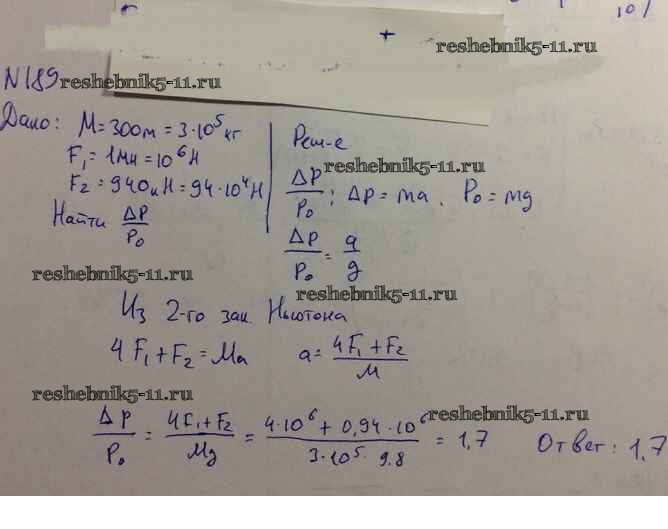 10/
+
reshebnik5-11.ru
N189 reshebnik5-11.ru
Дано: M=300т=3·10⁵кг
F₁=1МН=10⁶Н
F₂=940кН=94·10⁴Н
Найти ΔP/P₀
Реш-е
reshebnik5-11.ru
ΔP/P₀; ΔP=ma. P₀=mg
ΔP/P₀=a/g
reshebnik5-11.ru
reshebnik5-11.ru
Из 2-го зак. Ньютона
4F₁+F₂=Ma a=4F₁+F₂/M
reshebnik5-11.ru
reshebnik5-11.ru
ΔP/P₀=4F₁+F₂/Mg=4·10⁶+0,94·10⁶/3·10⁵·9.8=1,7 Ответ: 1,7